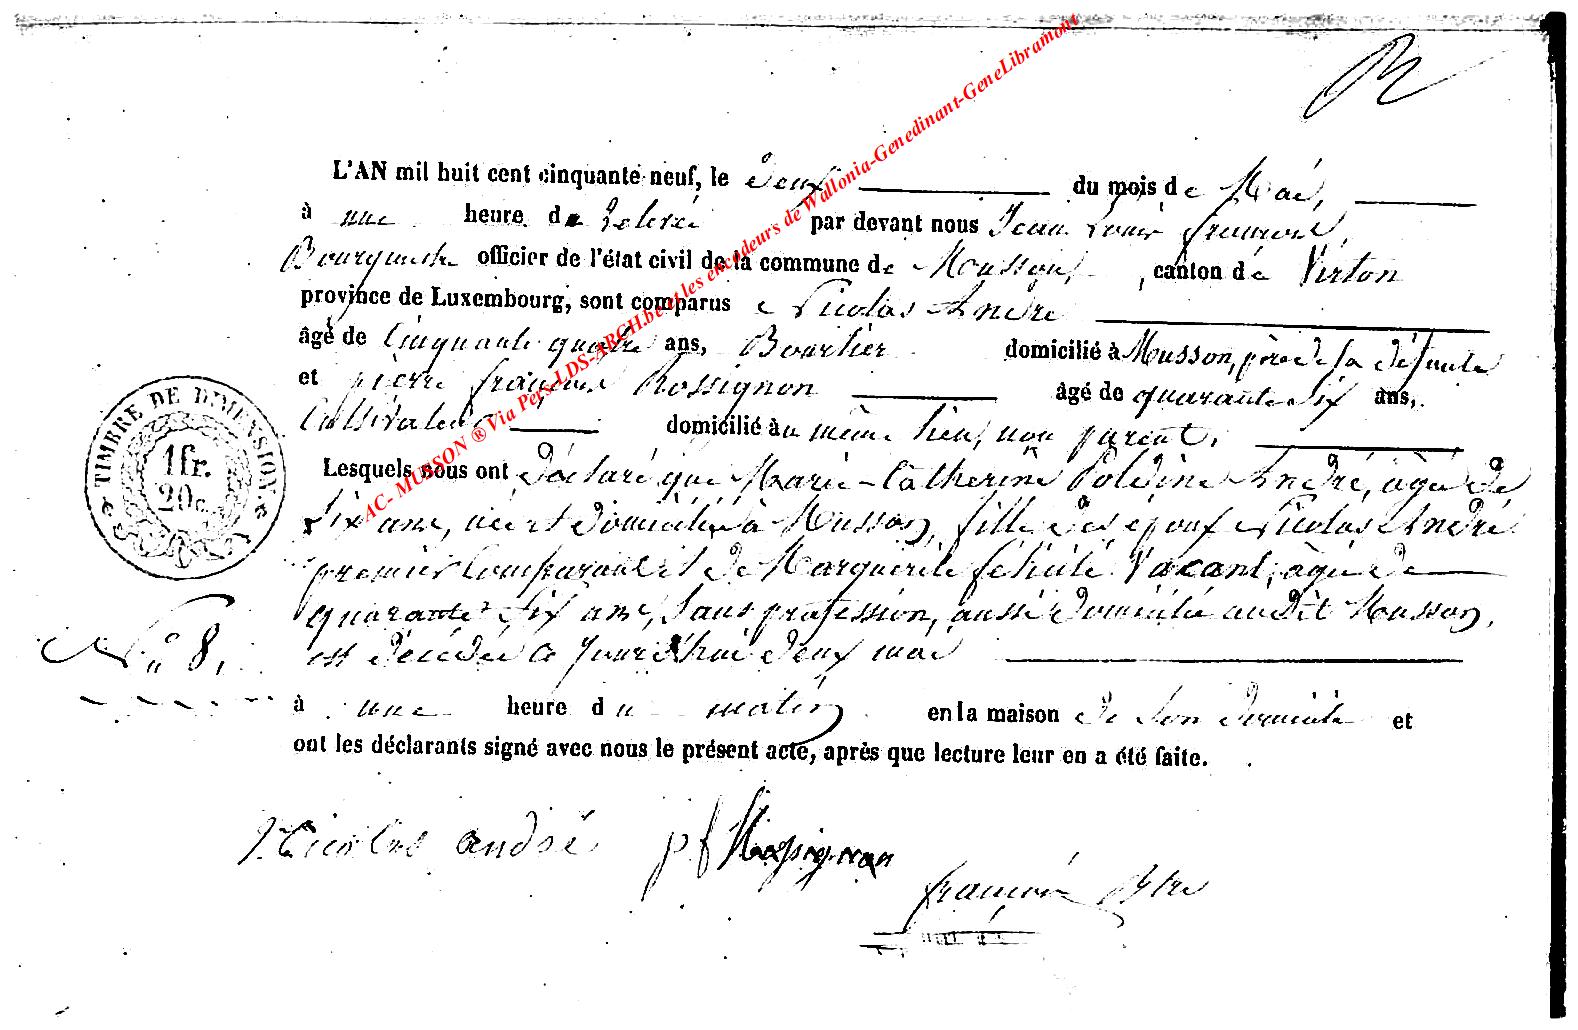 L'AN mil huit cent cinquante neuf, le deux du mois de Mai,
à une heure de relevée par devant nous Jean Louis françois,
Bourgmestre officier de l'état civil de la commune de Musson, canton de Virton
province de Luxembourg, sont comparus Nicolas André
âgé de Cinquante quatre ans, Bourlier domicilié à Musson, père de la défunte
et pierre françois Rossignon âgé de quarante Six ans,
Cultivateur domicilié au même lieu, non parent,
Lesquels nous ont déclaré que Marie-Catherine Poldine André, âgée de
Six ans, née et domiciliée à Musson, fille des époux Nicolas André
premier Comparant et de Marguerite félicité Vacant, âgée de
quarante Six ans, Sans profession, aussi domiciliée audit Musson,
est décédée ce jourd'hui deux mai
à une heure du matin en la maison de Son domicile et
ont les déclarants signé avec nous le présent acte, après que lecture leur en a été faite.
Nicolas andré
p f Rossignon
françois
TIMBRE DE DIMENSION.
1 fr.
20 c.
N° 8,
AC- MUSSON ® Via Pers-LDS-ARCH.be et les encodeurs de Wallonia-Genedinant-GeneLibramont